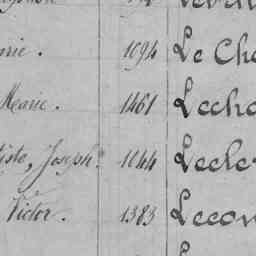 rie. 1094 Le Che
Marie. 1461 Lecho
tiste, Joseph. 1044 Lecler
Victor. 1383 Lecom